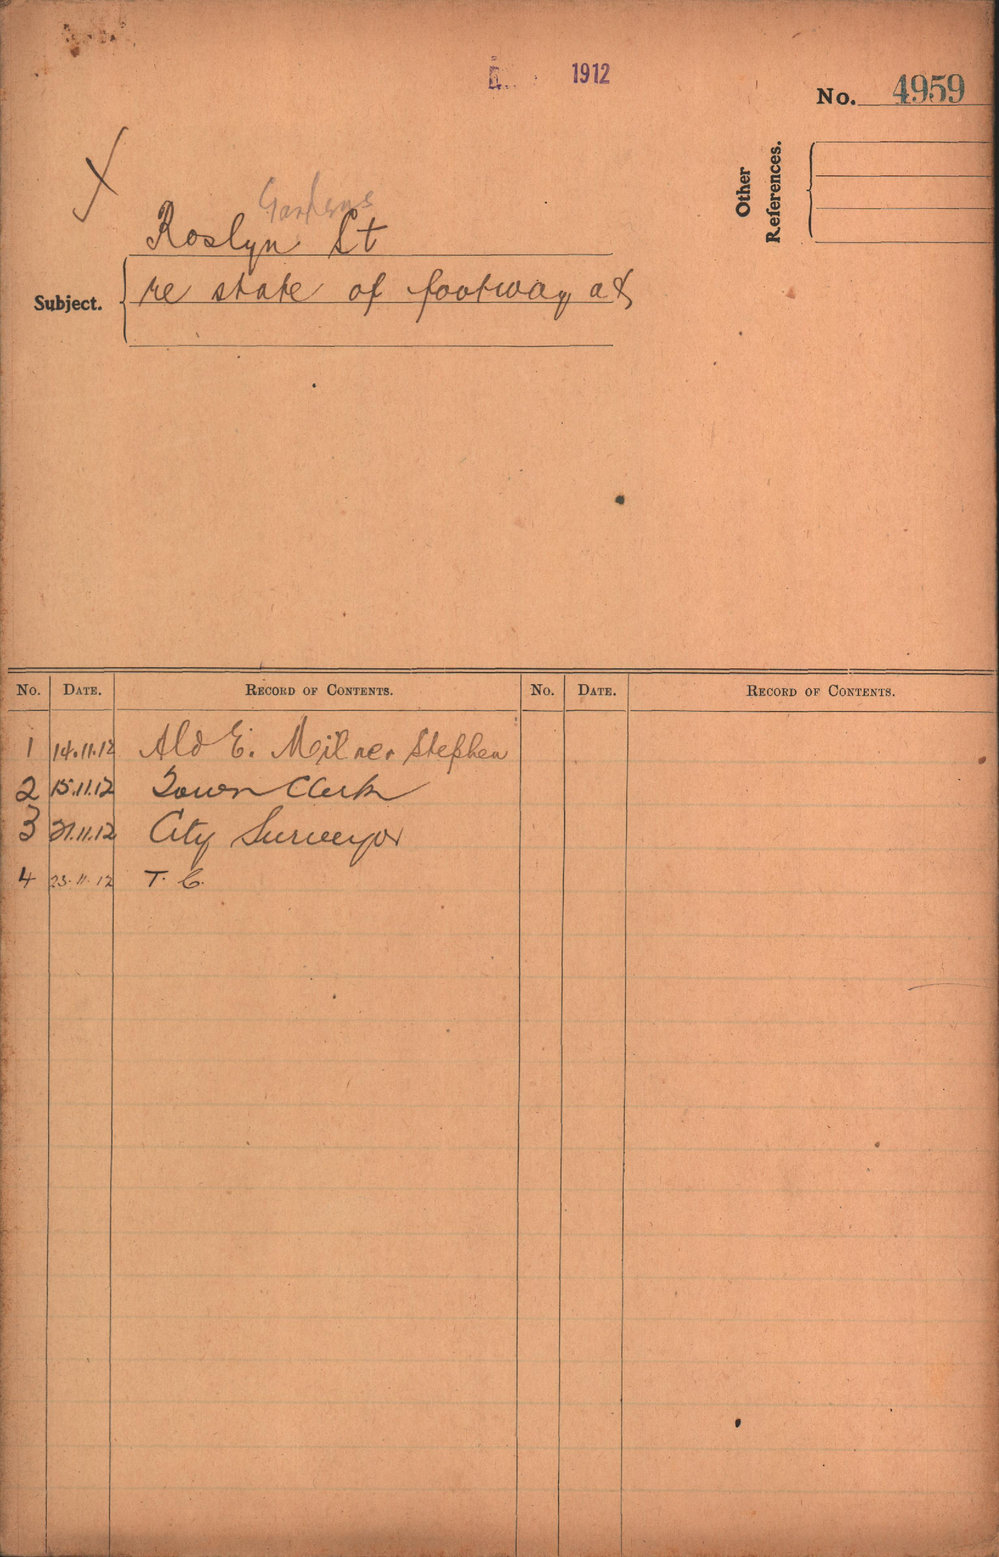 1912
No. 4959
Other
References.
Gardens
Roslyn St
Subject. re state of footway at
No. Date. Record of Contents. No. Date. Record of Contents.
1 14.11.12 Ald E. Milner Stephen
2 15.11.12 Town Clerk
3 21.11.12 City Surveyor
4 23.11.12 T. C.